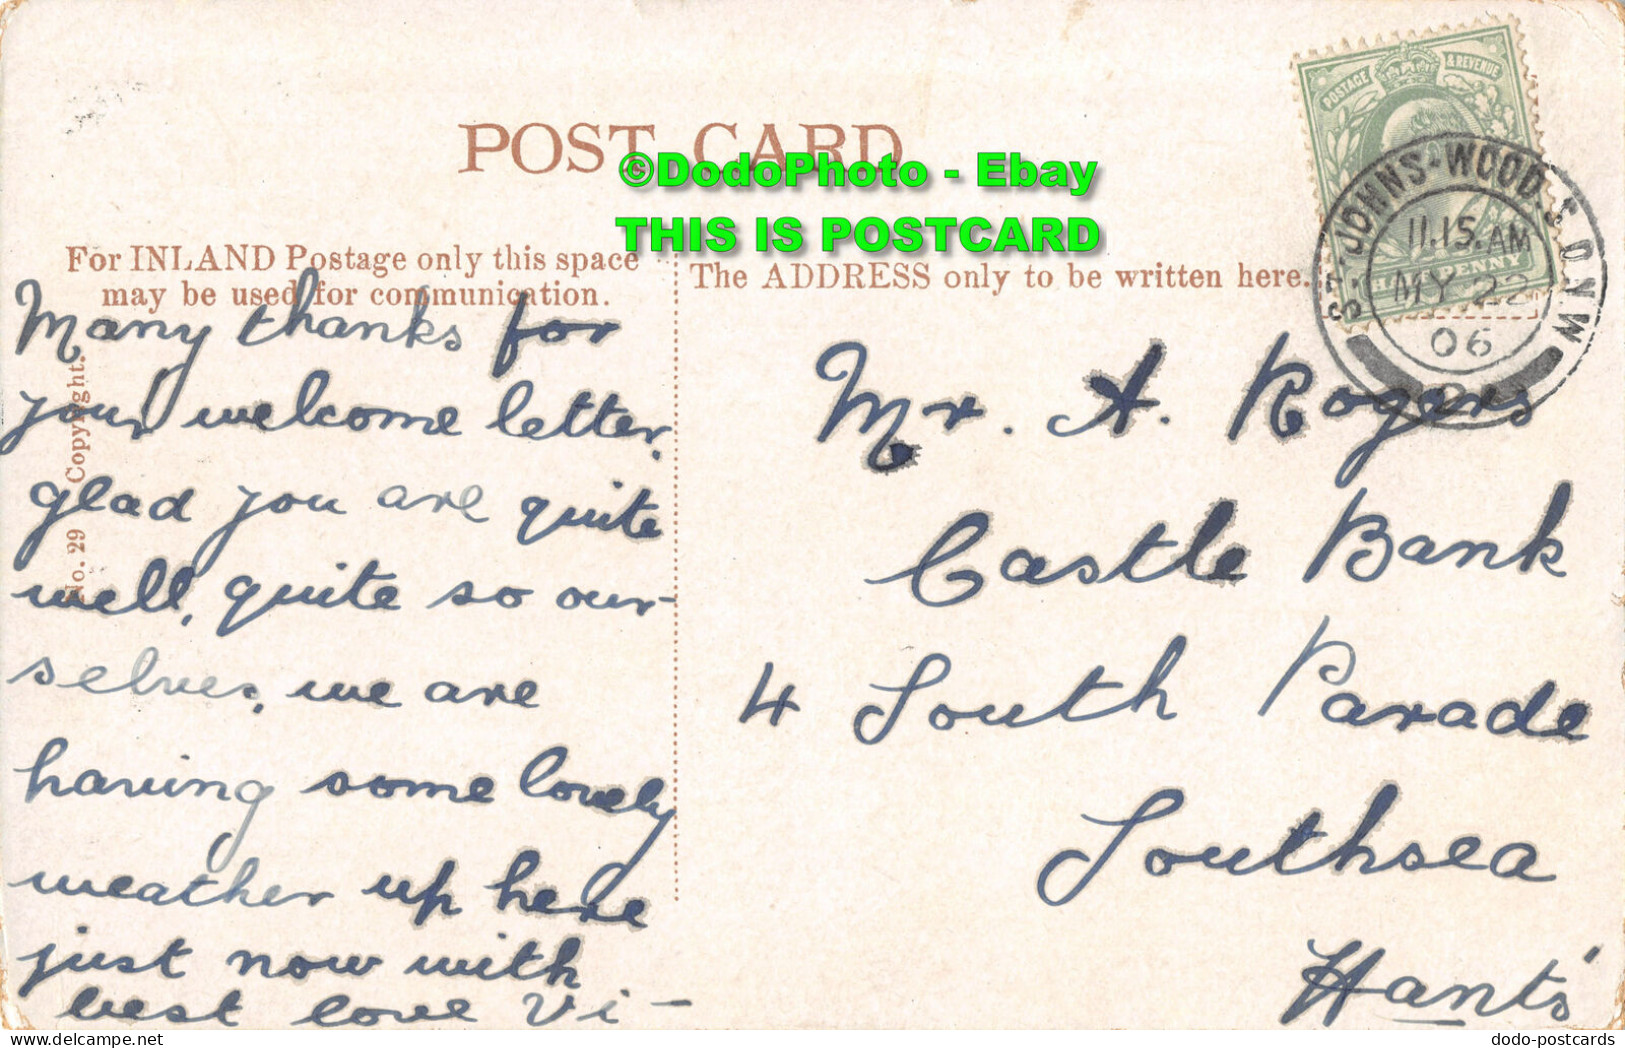 POST CARD
©DodoPhoto - Ebay
THIS IS POSTCARD
POSTAGE & REVENUE
ST. JOHNS-WOOD. S.O.N.W
11.15.AM
MY 22
06
For INLAND Postage only this space
may be used for communication.
The ADDRESS only to be written here.
No. 29 Copyright.
Many thanks for
your welcome letter,
glad you are quite
well, quite so our-
selves, we are
having some lovely
weather up here
just now with
best love Vi -
Mr. A. Rogers
Castle Bank
4 South Parade
Southsea
Hants'
dodo-postcards